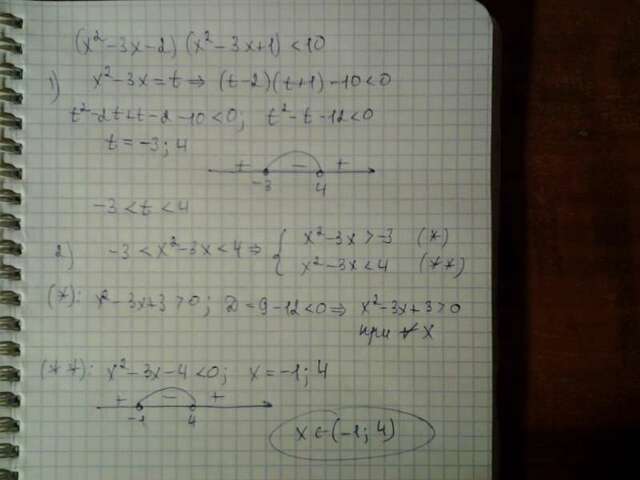 (x²-3x-2)(x²-3x+1)<10
1) x²-3x=t ⇒ (t-2)(t+1)-10<0
t²-2t+t-2-10<0; t²-t-12<0
t=-3; 4
+ - +
-3 4
-3<t<4
2) -3<x²-3x<4 ⇒ { x²-3x>-3 (*)
x²-3x<4 (**)
(*): x²-3x+3>0; D=9-12<0 ⇒ x²-3x+3>0
при ∀ x
(**): x²-3x-4<0; x=-1; 4
+ - +
-1 4
x∈(-1; 4)